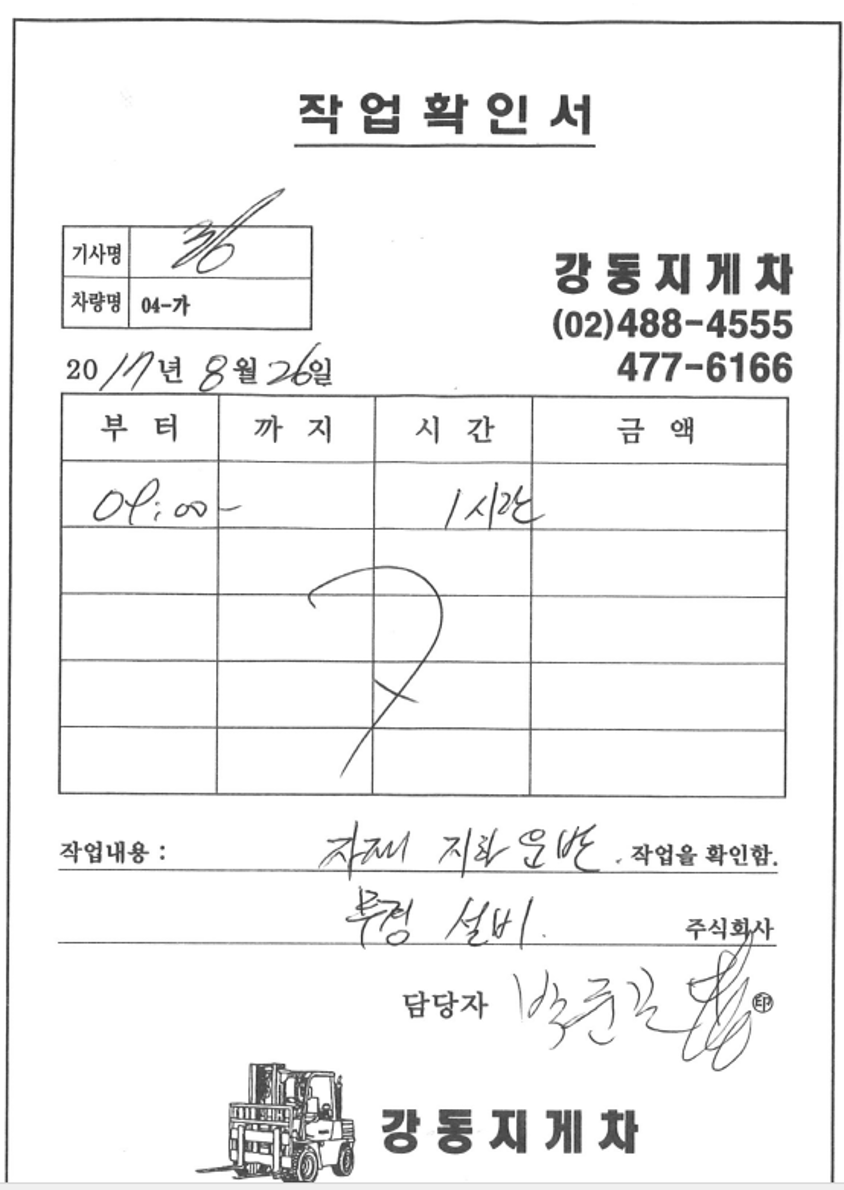 작업확인서
기사명
차량명 04-가
강동지게차
(02)488-4555
477-6166
2017년 8월 26일
부터 까지 시간 금액
09:00- 1시간
작업내용 : 자재 지하 운반. 작업을 확인함.
설비. 주식회사
담당자 박준 印
강동지게차